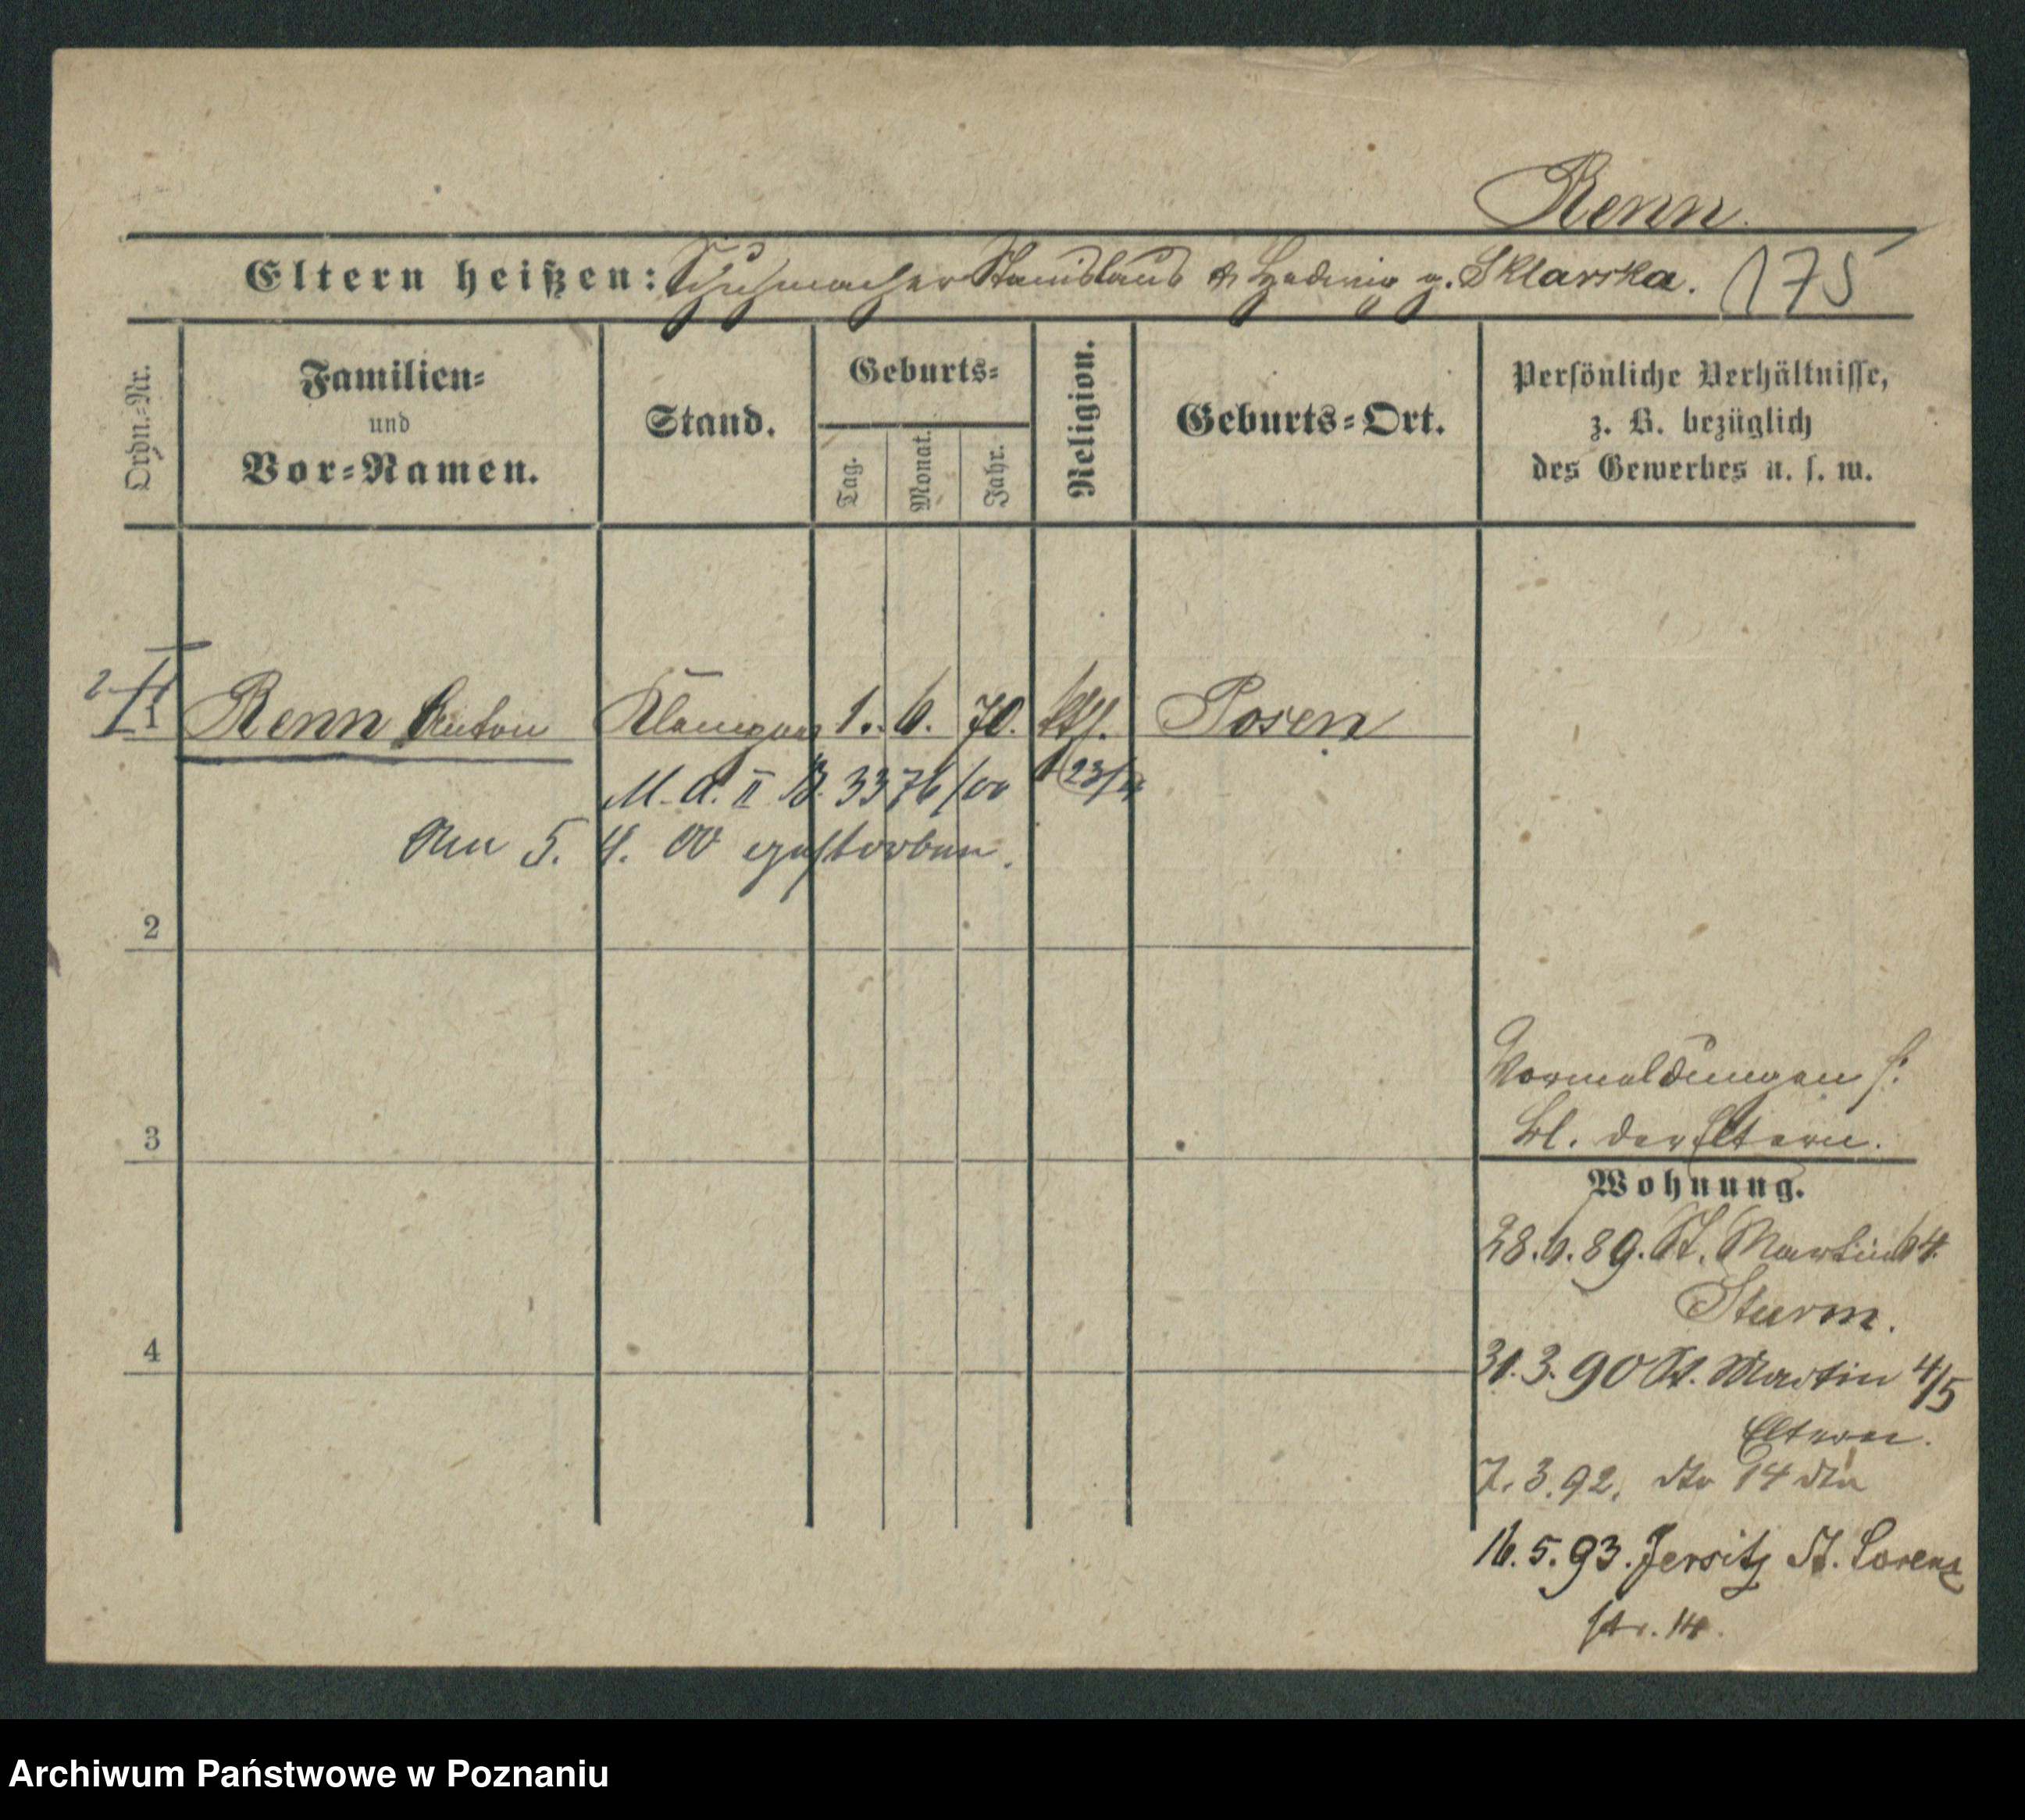 Renn.
Eltern heißen: Schuhmacher Stanislaus & Hedwig g. Sklarska. 175
Ordn.-Nr.
Familien-
und
Vor-Namen.
Stand.
Geburts-
Tag.
Monat.
Jahr.
Religion.
Geburts-Ort.
Persönliche Verhältnisse,
z. B. bezüglich
des Gewerbes u. s. w.
1 Renn Anton Klempner 1. 6. 70. kth. Posen
M. A. II B. 3376/00
Am 5. 4. 00 gestorben.
2
3
4
Vormeldungen s.
bl. der Eltern.
Wohnung.
28.6.89. St. Martin 64.
Sturm.
31.3.90 St. Martin 4/5
Eltern.
7.3.92. dto 14 dto
16.5.93. Jersitz St. Lorenz
str. 14.
Archiwum Państwowe w Poznaniu